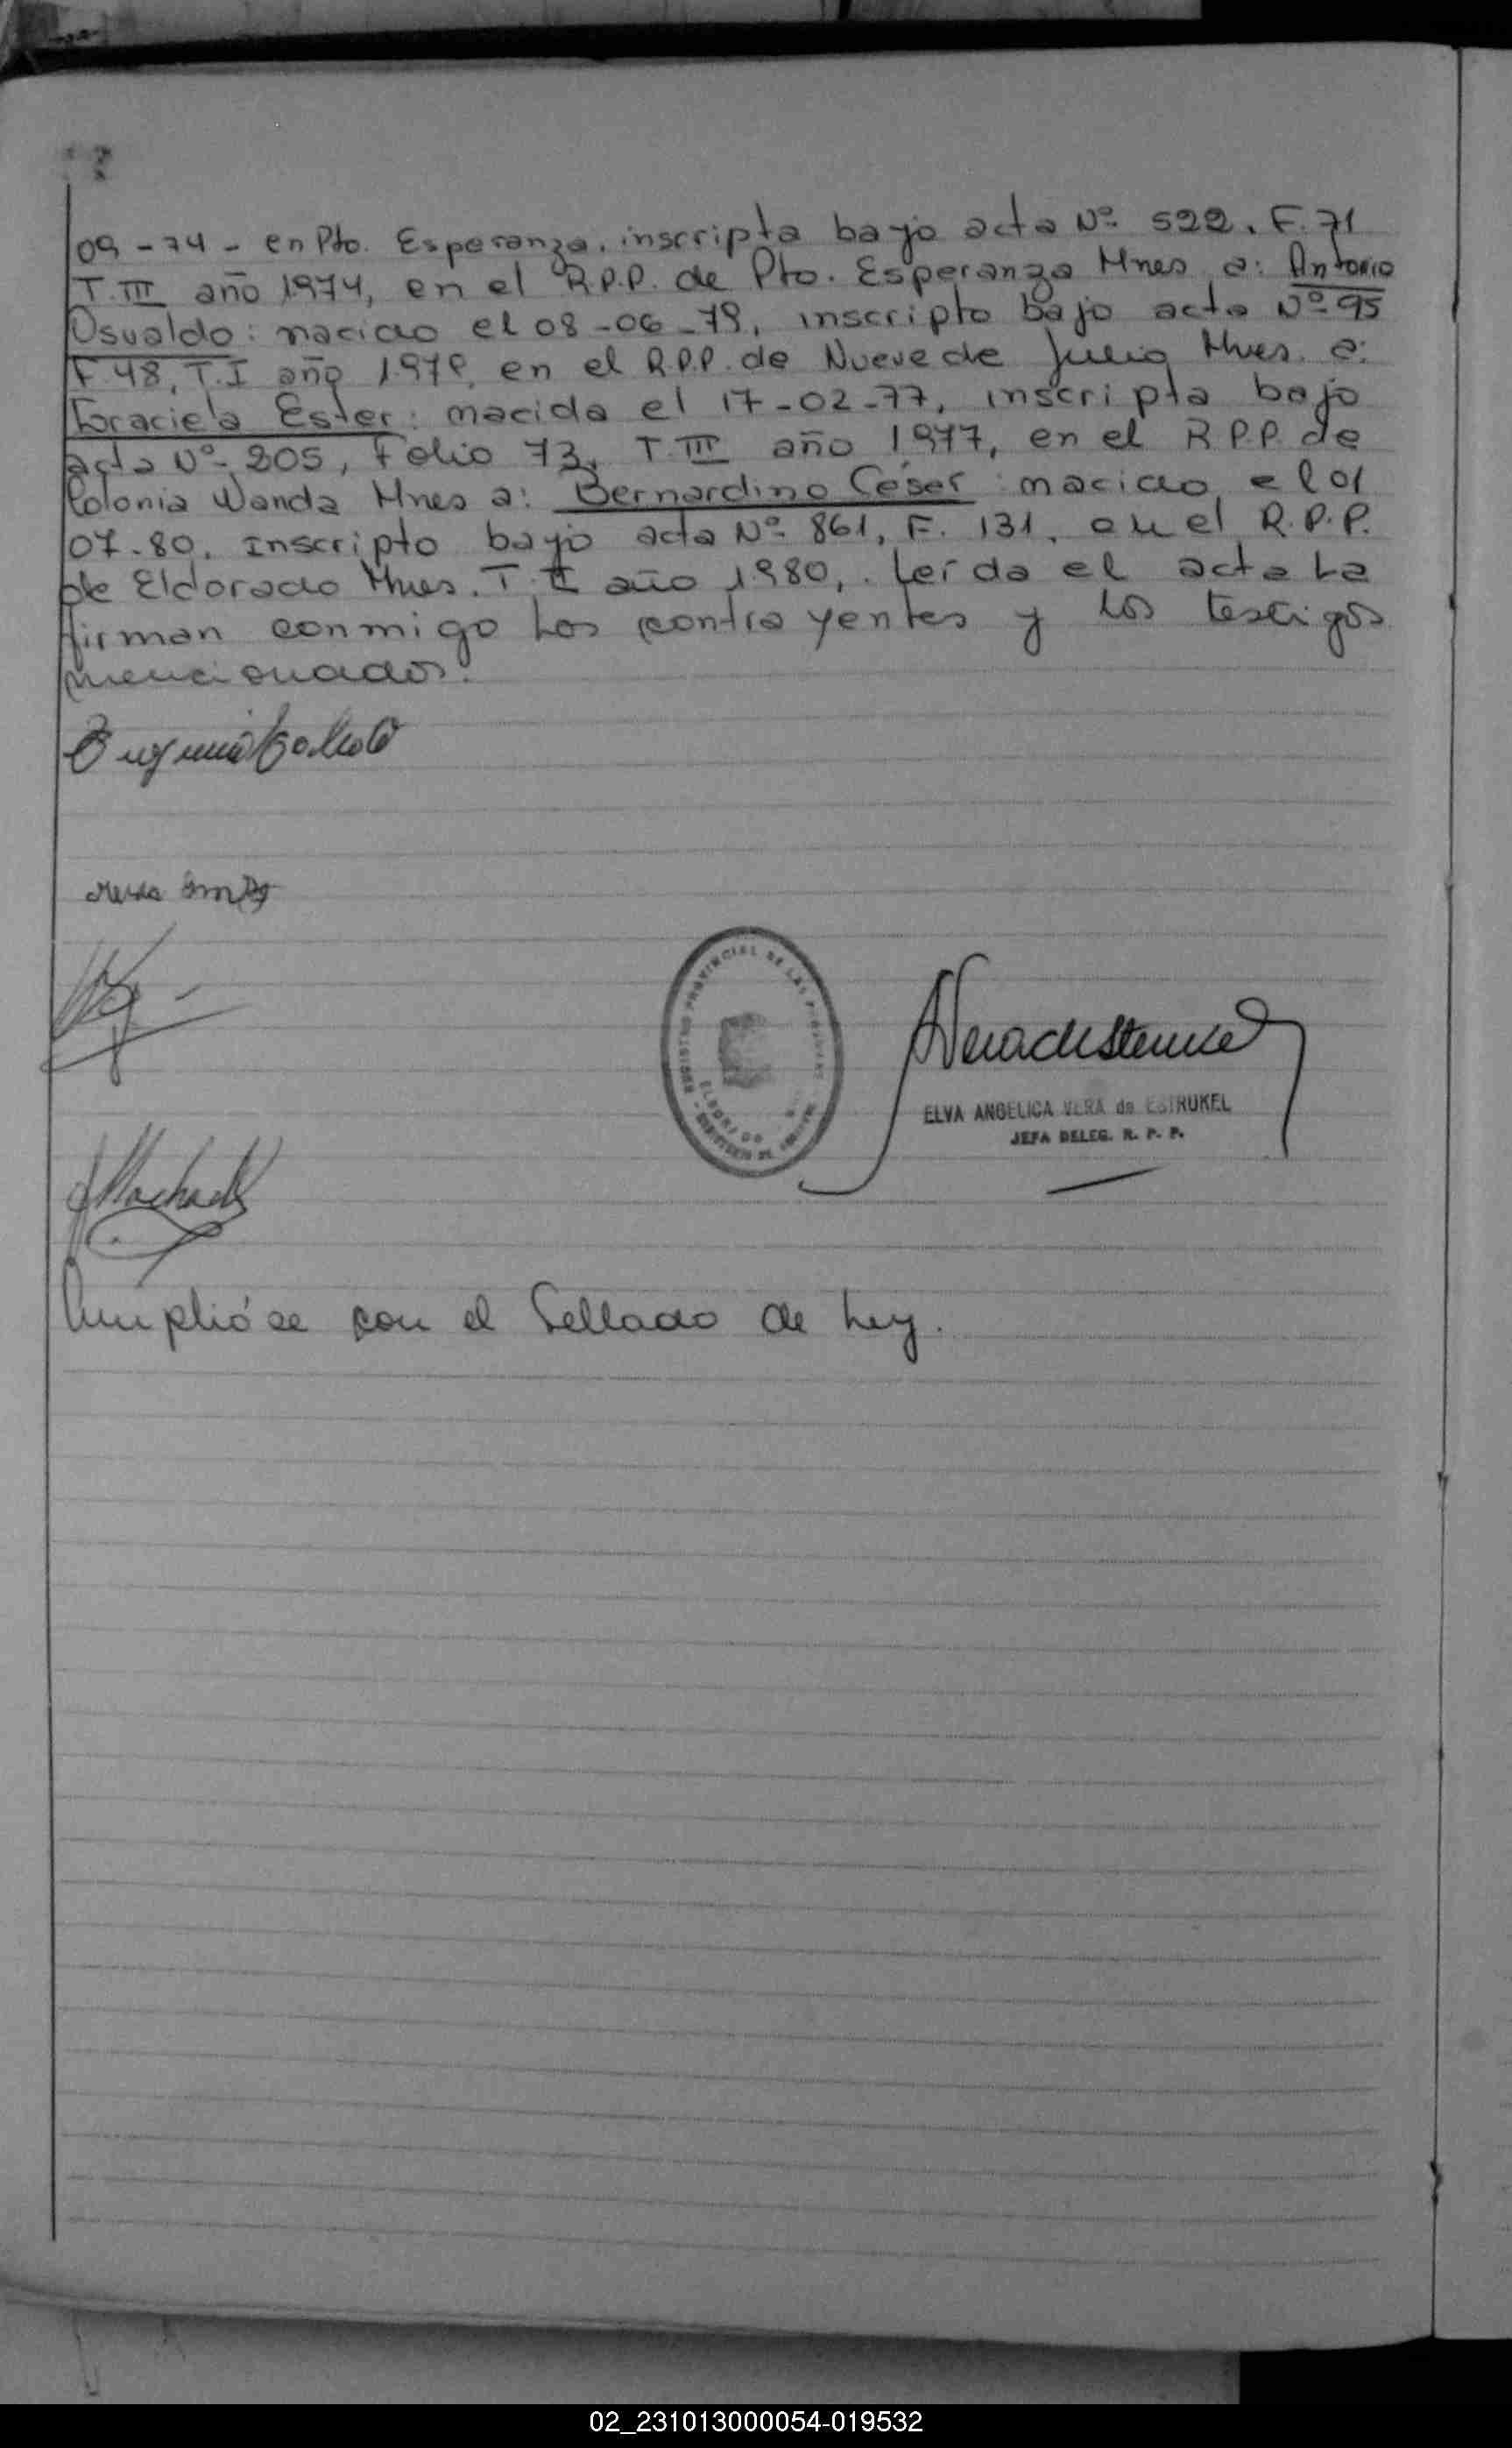 09-74- en Pto. Esperanza, inscripta bajo acta Nº 522, F. 71
T. III año 1974, en el R.P.P. de Pto. Esperanza Mnes a: Antonio
Osvaldo: nacido el 08-06-79, inscripto bajo acta Nº 95
F. 48, T. I año 1979, en el R.P.P. de Nueve de Julio Mnes. a:
Graciela Ester: nacida el 17-02-77, inscripta bajo
acta Nº 205, Folio 73, T. III año 1977, en el R.P.P. de
Colonia Wanda Mnes a: Bernardino César: nacido el 01
07-80. Inscripto bajo acta Nº 861, F. 131, en el R.P.P.
de Eldorado Mnes. T. año 1980,. Leída el acta La
firman conmigo Los contrayentes y Los testigos
mencionados.
REGISTRO PROVINCIAL DE LAS PERSONAS
ELDORADO
ELVA ANGELICA VERA de ESTRUKEL
JEFA DELEG. R. P. P.
Machado
Cumplióse con el Sellado de Ley.
02_231013000054-019532